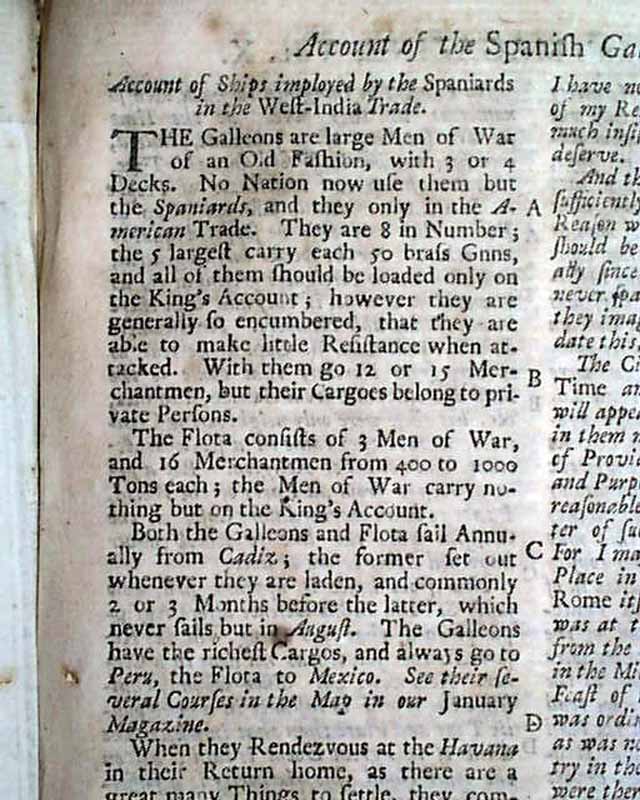 Account of the Spaniſh Ga
Account of Ships imployed by the Spaniards
in the Weſt-India Trade.
THE Galleons are large Men of War
of an Old Faſhion, with 3 or 4
Decks. No Nation now uſe them but
the Spaniards, and they only in the A-
merican Trade. They are 8 in Number;
the 5 largeſt carry each 50 braſs Guns,
and all of them ſhould be loaded only on
the King's Account; however they are
generally ſo encumbered, that they are
able to make little Reſiſtance when at-
tacked. With them go 12 or 15 Mer-
chantmen, but their Cargoes belong to pri-
vate Perſons.
The Flota conſiſts of 3 Men of War,
and 16 Merchantmen from 400 to 1000
Tons each; the Men of War carry no-
thing but on the King's Account.
Both the Galleons and Flota ſail Annu-
ally from Cadiz; the former ſet out
whenever they are laden, and commonly
2 or 3 Months before the latter, which
never ſails but in Auguſt. The Galleons
have the richeſt Cargos, and always go to
Peru, the Flota to Mexico. See their ſe-
veral Courſes in the Map in our January
Magazine.
When they Rendezvous at the Havana
in their Return home, as there are a
great many Things to ſettle, they com-
A
B
C
D
I have no
of my Re
much inſi
deſerve.
And th
ſufficiently
Reaſon w
ſhould be
ally ſince
never ſpa
they imag
date this.
The Ci
Time an
will appea
in them n
of Provi
and Purp
reaſonable
ter of ſu
For I ma
Place in
Rome itſ
was at t
from the
in the Mi
Feaſt of
was ordi
as was n
try in the
were ther